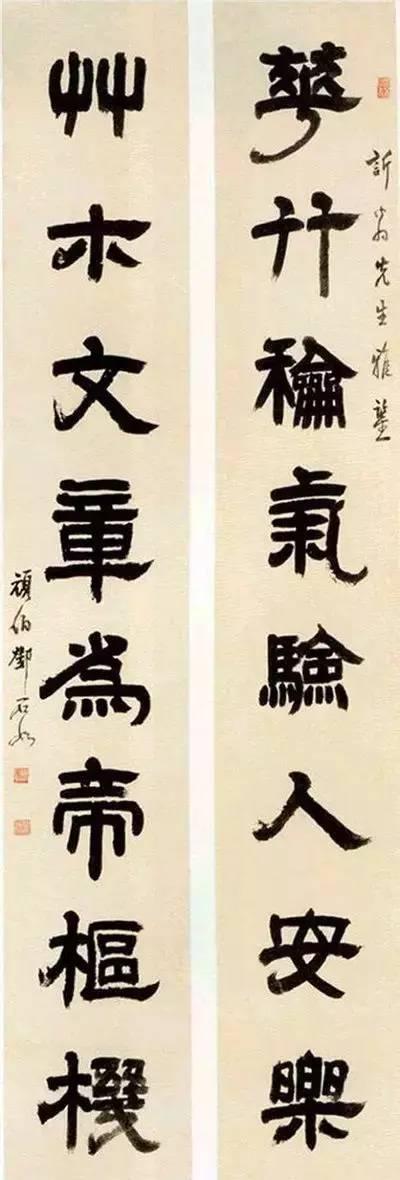 訢翁先生雅鑒
華竹龢氣驗人安樂
艸木文章爲帝樞機
頑伯鄧石如